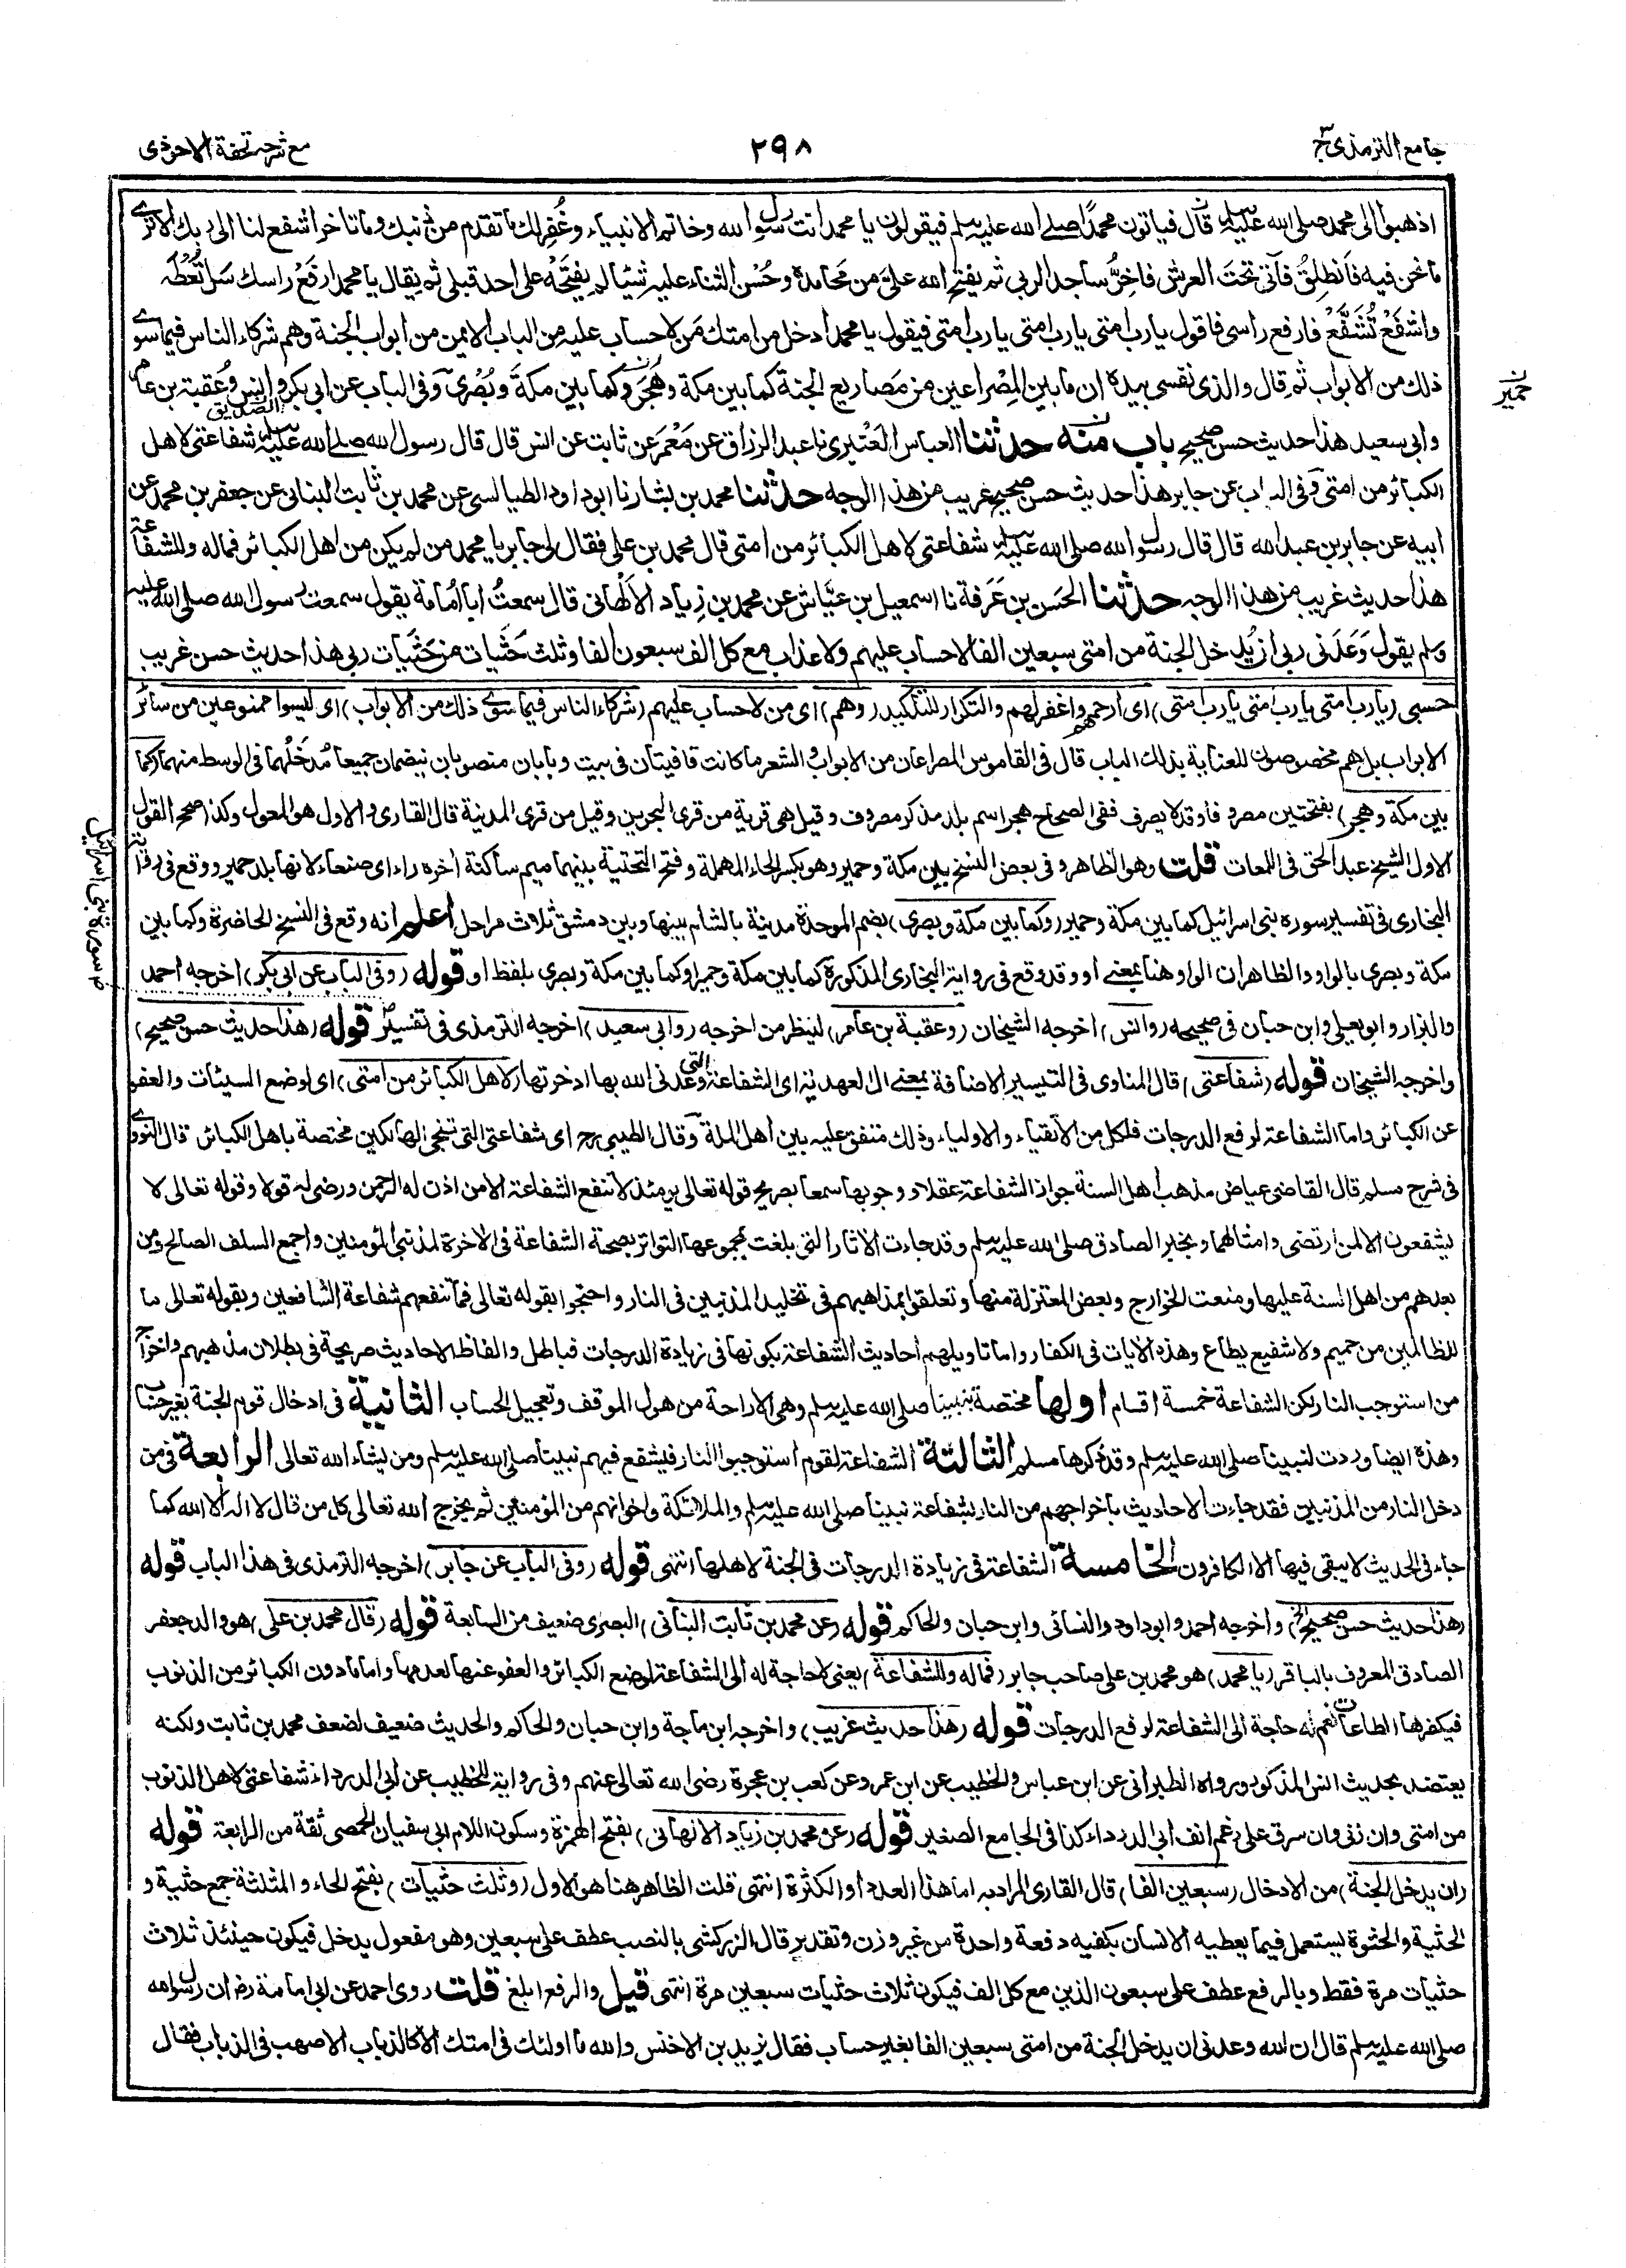 جامع الترمذی ج ۳
۲۹۸
مع شرحہ تحفة الاحوذی
اذهبوا الى محمد صلى الله عليه وسلم قال فياتون محمدًا صلے الله عليه وسلم فيقولون يا محمد انت رسول الله وخاتم الانبياء وغُفِر لك ما تقدم من ذنبك وما تاخر اشفع لنا الى ربك الا ترے
ما نحن فيه فَانطلِقُ فآتی تحتَ العرش فاخِرُّ ساجدا لربی ثم يفتح الله علیَّ من مَحامدہ وحُسْن الثناء عليه شيئا لم يفتَحْه على احد قبلی ثم يقال يا محمد ارفَعْ راسك سَلْ تُعْطَه
واشفَعْ تُشَفَّعْ فارفع راسی فاقول يا رب امتی يا رب امتی يا رب امتی فيقول يا محمد ادخل من امتك مَن لا حساب عليه من الباب الايمن من ابواب الجنة وهم شركاء الناس فيما سوے
ذلك من الابواب ثم قال والذی نفسی بيده ان ما بين المِصْراعين من مَصاريع الجنة كما بين مكة وهَجَر وكما بين مكةَ وبُصْرٰی وفی الباب عن ابی بكر الصديق وانس وعُقبة بن عامر
خمير
وابی سعيد هذا حديث حسن صحيح باب منه حدثنا العباس العَنْبری نا عبد الرزاق عن مَعْمَر عن ثابت عن انس قال قال رسول الله صلے الله عليه وسلم شفاعتی لاهل
الكبائر من امتی وفی الباب عن جابر هذا حديث حسن صحيح غريب من هذا الوجه حدثنا محمد بن بشار نا ابو داود الطيالسی عن محمد بن ثابت البنانی عن جعفر بن محمد عن
ابيه عن جابر بن عبد الله قال قال رسول الله صلى الله عليه وسلم شفاعتی لاهل الكبائر من امتی قال محمد بن علی فقال لی جابر يا محمد من لم يكن من اهل الكبائر فماله وللشفاعة
هذا حديث غريب من هذا الوجه حدثنا الحَسَن بن عَرَفة نا اسمعيل بن عيَّاش عن محمد بن زِياد الاَلْهانی قال سمعتُ ابا اُمَامة يقول سمعت رسول الله صلى الله عليه
وسلم يقول وَعَدَنی ربی ان يُدخل الجنة من امتی سبعين الفا لا حساب عليهم ولا عذاب مع كل الف سبعون الفا وثلث حَثَيات من حَثَيات ربی هذا حديث حسن غريب
حسبی (يارب امتی يارب امتی يارب امتی) ای ارحمهم واغفر لهم والتكرار للتاكيد (وهم) ای من لا حساب عليهم (شركاء الناس فيما سوے ذلك من الابواب) ای ليسوا ممنوعين من سائر
الابواب بل هم مخصوصون للعناية بذلك الباب قال فی القاموس المصراعان من الابواب والشعر ما كانت قافيتان فی بيت وبابان منصوبان ينضمان جميعا مُدخَلُهما فی الوسط منهما (كما
بين مكة وهجر) بفتحتين مصروفا وقد لا يصرف ففی الصحاح هجر اسم بلد مذكر مصروف وقيل هی قرية من قری البحرين وقيل من قری المدينة قال القاری والاول هو المعول وكذا صحح القول
الاول الشيخ عبد الحق فی اللمعات قلت وهو الظاهر وفی بعض النسخ بين مكة وحمير وهو بكسر الحاء المهملة وفتح التحتية بينهما ميم ساكنة اخره راء ای صنعاء لانها بلد حمير ووقع فی رواية
البخاری فی تفسير سورہ بنی اسرائيل كما بين مكة وحمير (وكما بين مكة وبصری) بضم الموحدة مدينة بالشام بينها وبين دمشق ثلاث مراحل اعلم انه وقع فی النسخ الحاضرة وكما بين
سورة بنی اسرائيل
مكة وبصری بالواو والظاهر ان الواو هنا بمعنے او وقد وقع فی رواية البخاری المذكورة كما بين مكة وحمير او كما بين مكة وبصری بلفظ او قوله (وفی الباب عن ابی بكر) اخرجه احمد
والبزار وابو يعلی وابن حبان فی صحيحه (وانس) اخرجه الشيخان (وعقبة بن عامر) لينظر من اخرجه (وابی سعيد) اخرجه الترمذی فی تفسير قوله (هذا حديث حسن صحيح)
واخرجه الشيخان قوله (شفاعتی) قال المناوی فی التيسير الاضافة بمعنے ال العهدية ای الشفاعة التی وعدنی الله بها ادخرتها (لاهل الكبائر من امتی) ای لوضع السيئات والعفو
عن الكبائر واما الشفاعة لرفع الدرجات فلكل من الاتقياء والاولياء وذلك متفق عليه بين اهل الملة وقال الطيبی رح ای شفاعتی التی تنجی الهالكين مختصة باهل الكبائر قال النووے
فی شرح مسلم قال القاضی عياض مذهب اهل السنة جواز الشفاعة عقلا ووجوبها سمعا بصريح قوله تعالى يومئذ لا تنفع الشفاعة الا من اذن له الرحمن ورضی له قولا وقوله تعالى لا
يشفعون الا لمن ارتضی وامثالهما وبخبر الصادق صلى الله عليه وسلم وقد جاءت الاثار التی بلغت بمجموعها التواتر بصحة الشفاعة فی الاخرة لمذنبی المؤمنين واجمع السلف الصالح ومن
بعدهم من اهل السنة عليها ومنعت الخوارج وبعض المعتزلة منها وتعلقوا بمذاهبهم فی تخليد المذنبين فی النار واحتجوا بقوله تعالى فما تنفعهم شفاعة الشافعين وبقوله تعالى ما
للظالمين من حميم ولا شفيع يطاع وهذه الايات فی الكفار واما تاويلهم احاديث الشفاعة بكونها فی زيادة الدرجات فباطل والفاظ الاحاديث صريحة فی بطلان مذهبهم واخراج
من استوجب النار لكن الشفاعة خمسة اقسام اولها مختصة بنبينا صلى الله عليه وسلم وهی الاراحة من هول الموقف وتعجيل الحساب الثانية فی ادخال قوم الجنة بغير حساب
وهذه ايضا وردت لنبينا صلى الله عليه وسلم وقد ذكرها مسلم الثالثة الشفاعة لقوم استوجبوا النار فيشفع فيهم نبينا صلى الله عليه وسلم ومن يشاء الله تعالى الرابعة فی من
دخل النار من المذنبين فقد جاءت الاحاديث باخراجهم من النار بشفاعة نبينا صلى الله عليه وسلم والملائكة واخوانهم من المؤمنين ثم يخرج الله تعالى كل من قال لا اله الا الله كما
جاء فی الحديث لا يبقی فيها الا الكافرون الخامسة الشفاعة فی زيادة الدرجات فی الجنة لاهلها انتهى قوله (وفی الباب عن جابر) اخرجه الترمذی فی هذا الباب قوله
(هذا حديث حسن صحيح الخ) واخرجه احمد وابو داود والنسائی وابن حبان والحاكم قوله (عن محمد بن ثابت البنانی) البصری ضعيف من السابعة قوله (قال محمد بن علی) هو والد جعفر
الصادق المعروف بالباقر (يا محمد) هو محمد بن علی صاحب جابر (فماله وللشفاعة) يعنی لا حاجة له الى الشفاعة لوضع الكبائر والعفو عنها لعدمها واما ما دون الكبائر من الذنوب
فيكفرها الطاعات نعم له حاجة الى الشفاعة لرفع الدرجات قوله (هذا حديث غريب) واخرجه ابن ماجة وابن حبان والحاكم والحديث ضعيف لضعف محمد بن ثابت ولكنه
يعتضد بحديث انس المذكور ورواه الطبرانی عن ابن عباس والخطيب عن ابن عمر وعن كعب بن عجرة رضی الله تعالى عنهم وفی رواية للخطيب عن ابی الدرداء شفاعتی لاهل الذنوب
من امتی وان زنی وان سرق علی رغم انف ابی الدرداء كذا فی الجامع الصغير قوله (عن محمد بن زياد الالهانی) بفتح الهمزة وسكون اللام ابی سفيان الحمصی ثقة من الرابعة قوله
(ان يدخل الجنة) من الادخال (سبعين الفا) قال القاری المراد به اما هذا العدد او الكثرة انتهى قلت الظاهر هنا هو الاول (وثلث حثيات) بفتح الحاء والمثلثة جمع حثية و
الحثية والحثوة يستعمل فيما يعطيه الانسان بكفيه دفعة واحدة من غير وزن وتقدير قال الزركشی بالنصب عطف علی سبعين وهو مفعول يدخل فيكون حينئذ ثلاث
حثيات مرة فقط وبالرفع عطف علی سبعون الذين مع كل الف فيكون ثلاث حثيات سبعين مرة انتهى قيل والرفع ابلغ قلت روی احمد عن ابی امامة رض ان رسول الله
صلى الله عليه وسلم قال ان الله وعدنی ان يدخل الجنة من امتی سبعين الفا بغير حساب فقال يزيد بن الاخنس والله ما اولئك فی امتك الا كالذباب الاصهب فی الذباب فقال